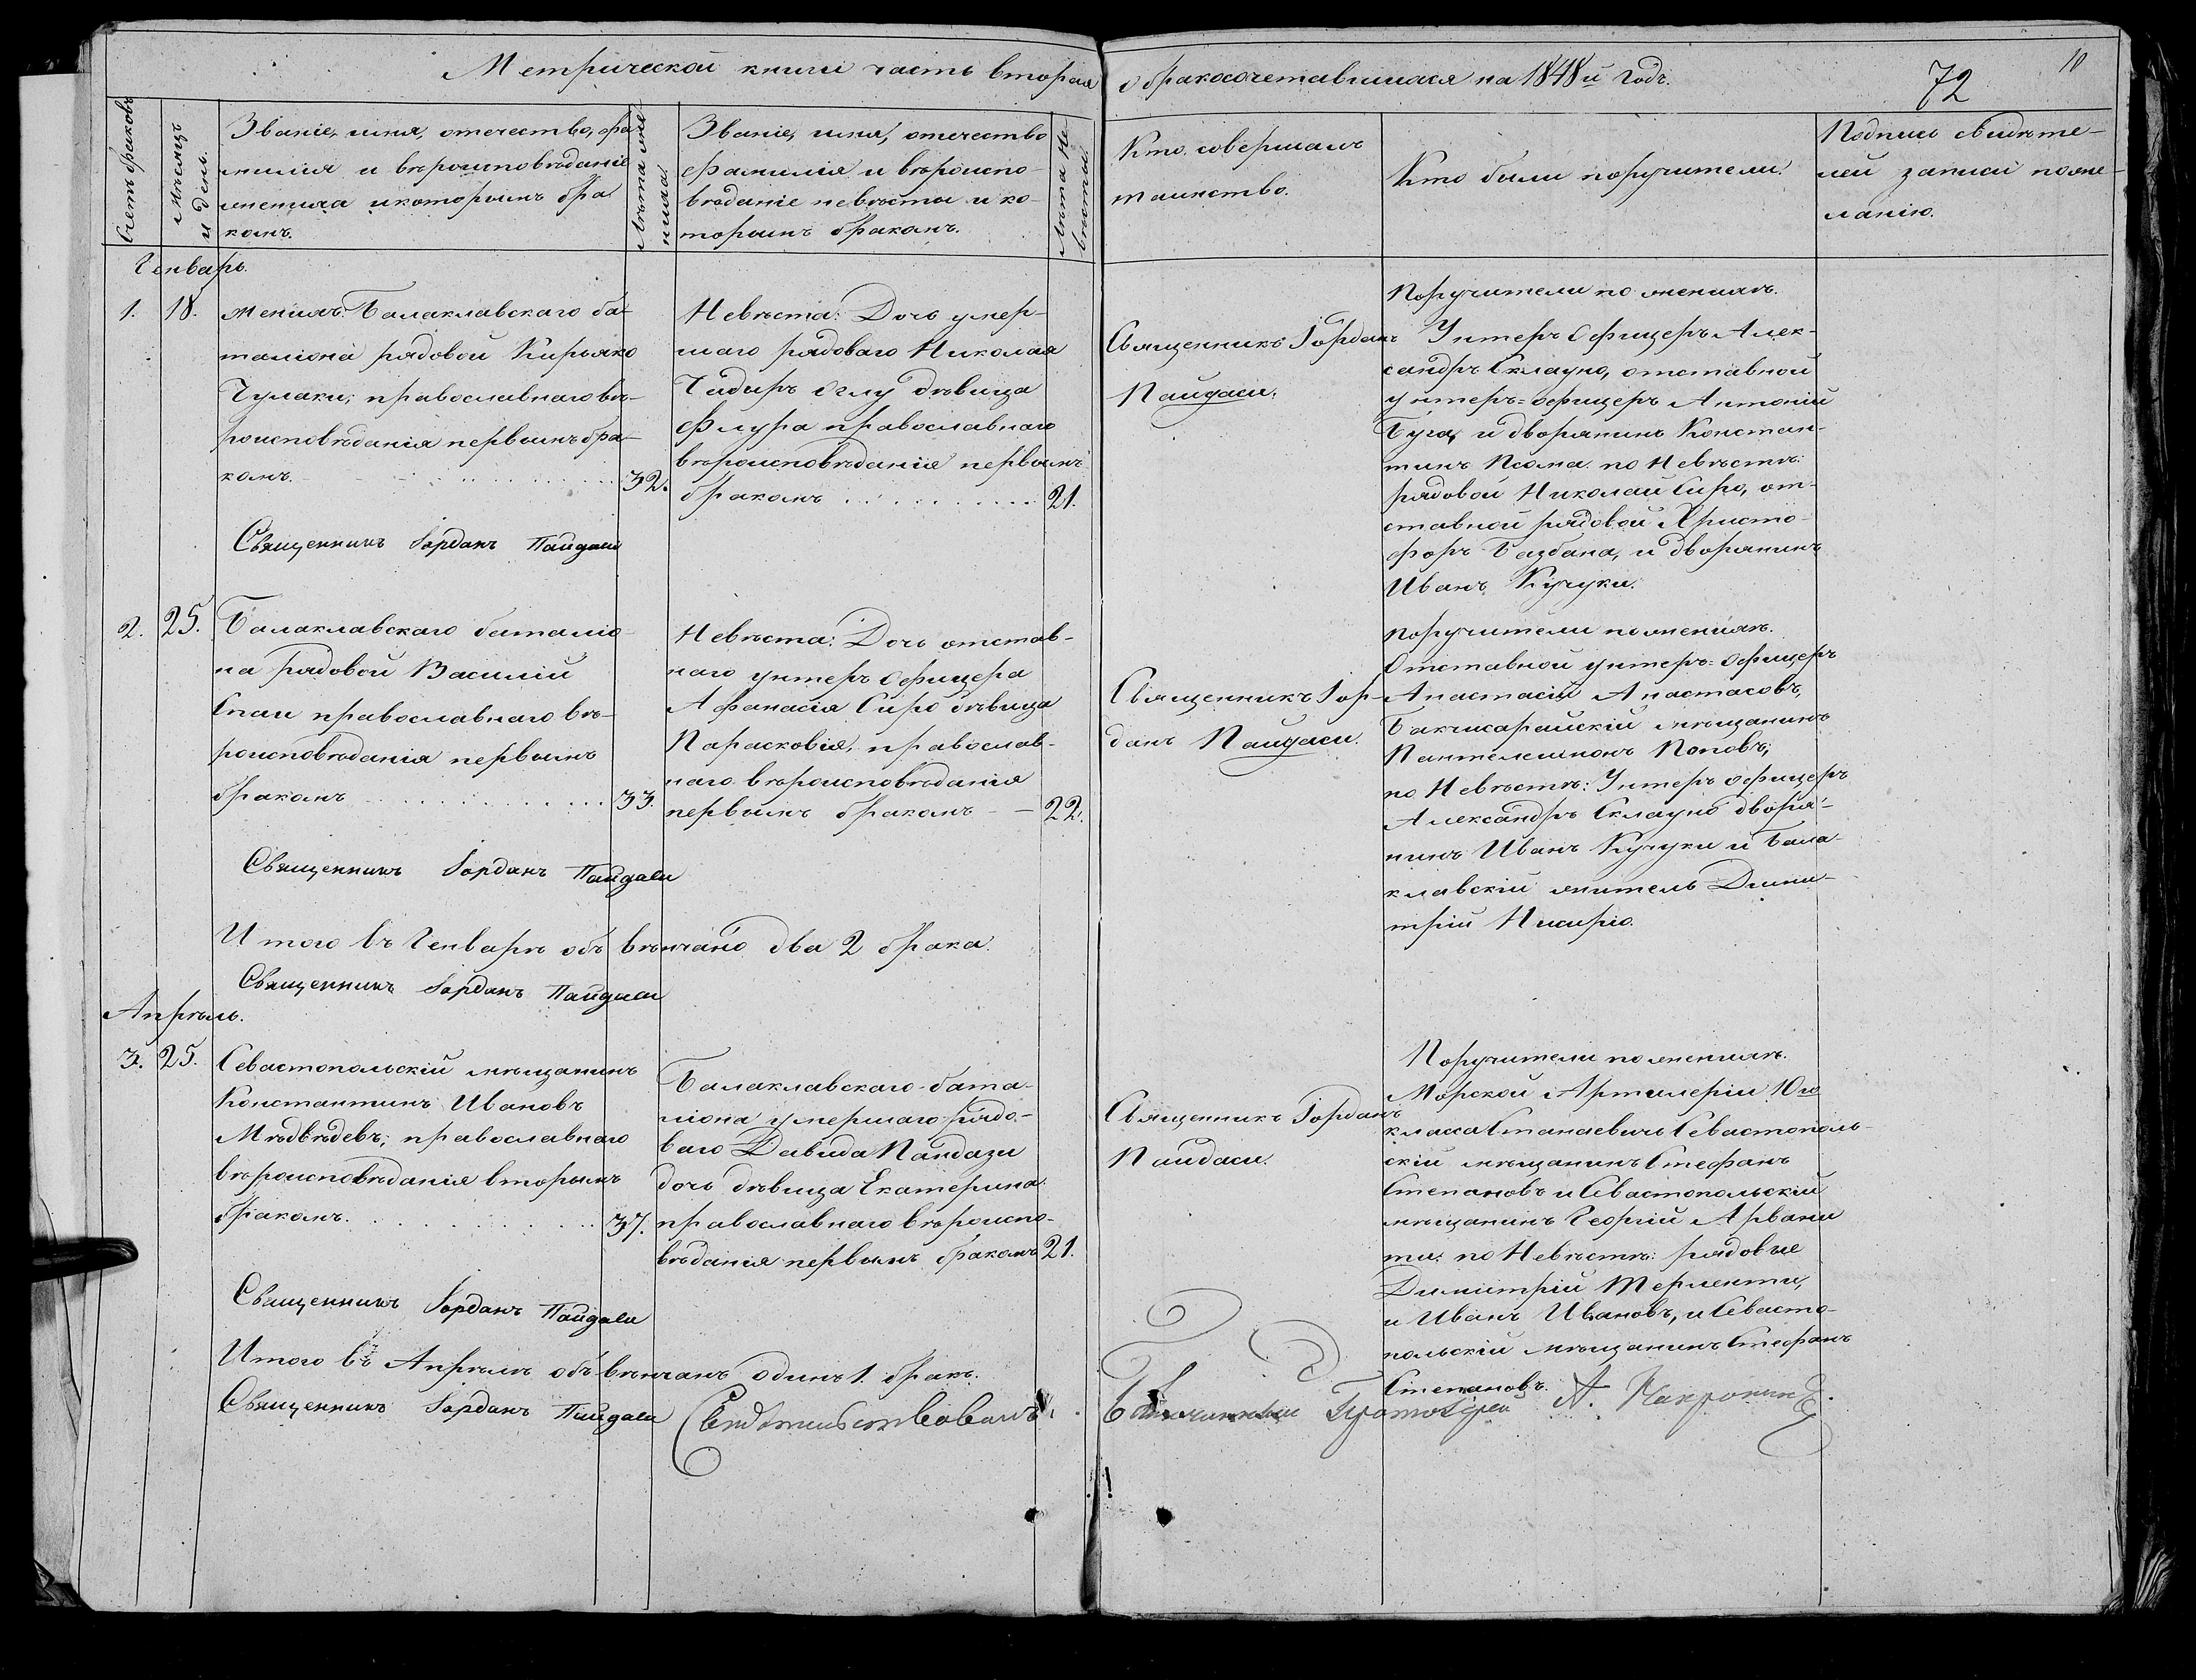 Метрической книги часть вторая о бракосочетавшихся на 1848й годъ.
72
10
Счетъ браковъ
Мѣсяцъ
и день.
Званіе, имя, отечество, фа-
милія и вѣроисповѣданіе
жениха и которымъ бра
комъ.
Лѣта же-
ниха
Званіе, имя, отечество
фамилія и вѣроиспо-
вѣданіе невѣсты и ко-
торымъ бракомъ.
Лѣта не-
вѣсты.
Кто совершалъ
таинство.
Кто были поручители.
Подписъ свидѣте-
лей записи по же-
ланію.
Генварь.
1.
18.
женихъ: Балаклавскаго ба-
таліона рядовой Кирьяко
Чулаки, православнаго вѣ-
роисповѣданія первымъ бра-
комъ.
32.
Невѣста: Дочь умер-
шаго рядоваго Николая
Чадиръ Оглу дѣвица
Флура православнаго
вѣроисповѣданія первымъ
бракомъ
21.
Священникъ Іорданъ
Пайдаси.
Поручители по женихъ.
Унтеръ Офицеръ Алек-
сандръ Склауно, отставной
унтеръ=офицеръ Антоній
Буга, и дворянинъ Констан-
тинъ Псома. по Невѣстѣ:
рядовой Николай Сиро, от-
ставной рядовой Христо-
форъ Базбана, и дворянинъ
Иванъ Кучуки.
Священникъ Іорданъ Пайдаси
2.
25.
Балаклавскаго баталіо-
на рядовой Василій
Спаи православнаго вѣ-
роисповѣданія первымъ
бракомъ
33.
Невѣста: Дочь отстав-
наго унтеръ Офицера
Афанасія Сиро дѣвица
Парасковія, православ-
наго вѣроисповѣданія
первымъ бракомъ
22.
Священникъ Іор-
данъ Пайдаси.
Поручители по женихъ.
Отставной унтеръ=Офицеръ
Анастасій Анастасовъ,
Бакчисарайскій мѣщанинъ
Пантелеимонъ Поповъ;
по Невѣстѣ: Унтеръ офицеръ
Александръ Склауно дворя-
нинъ Иванъ Кучуки и Бала-
клавскій житель Дими-
трій
Священникъ Іорданъ Пайдаси
Итого въ Генварѣ объ вѣнчано два 2 брака.
Священникъ Іорданъ Пайдаси
Апрѣль.
3.
25.
Севастопольскій мѣщанинъ
Константинъ Ивановъ
Мѣдвѣдевъ; православнаго
вѣроисповѣданія вторымъ
бракомъ.
37.
Балаклавскаго бата-
ліона умершаго рядо-
ваго Давида Пандази
дочь дѣвица Екатерина
православнаго вѣроиспо-
вѣданія первымъ бракомъ
21.
Священникъ Іорданъ
Пайдаси.
Поручители по женихъ.
Морской Артилеріи 10го
класа Станаевичъ Севастополь-
скій мѣщанинъ Стефанъ
Степановъ и Севастопольскій
мѣщанинъ Георгій Арвани
ти: по Невѣстѣ: рядовые
Димитрій Терленти,
и Иванъ Ивановъ, и Севасто-
польскій мѣщанинъ Стефанъ
Степановъ.
Священникъ Іорданъ Пайдаси
Итого въ Апрѣлѣ объ вѣнчанъ одинъ 1. бракъ.
Священникъ Іорданъ Пайдаси
Свидѣтельствовалъ Благочинный Протоіерей А.